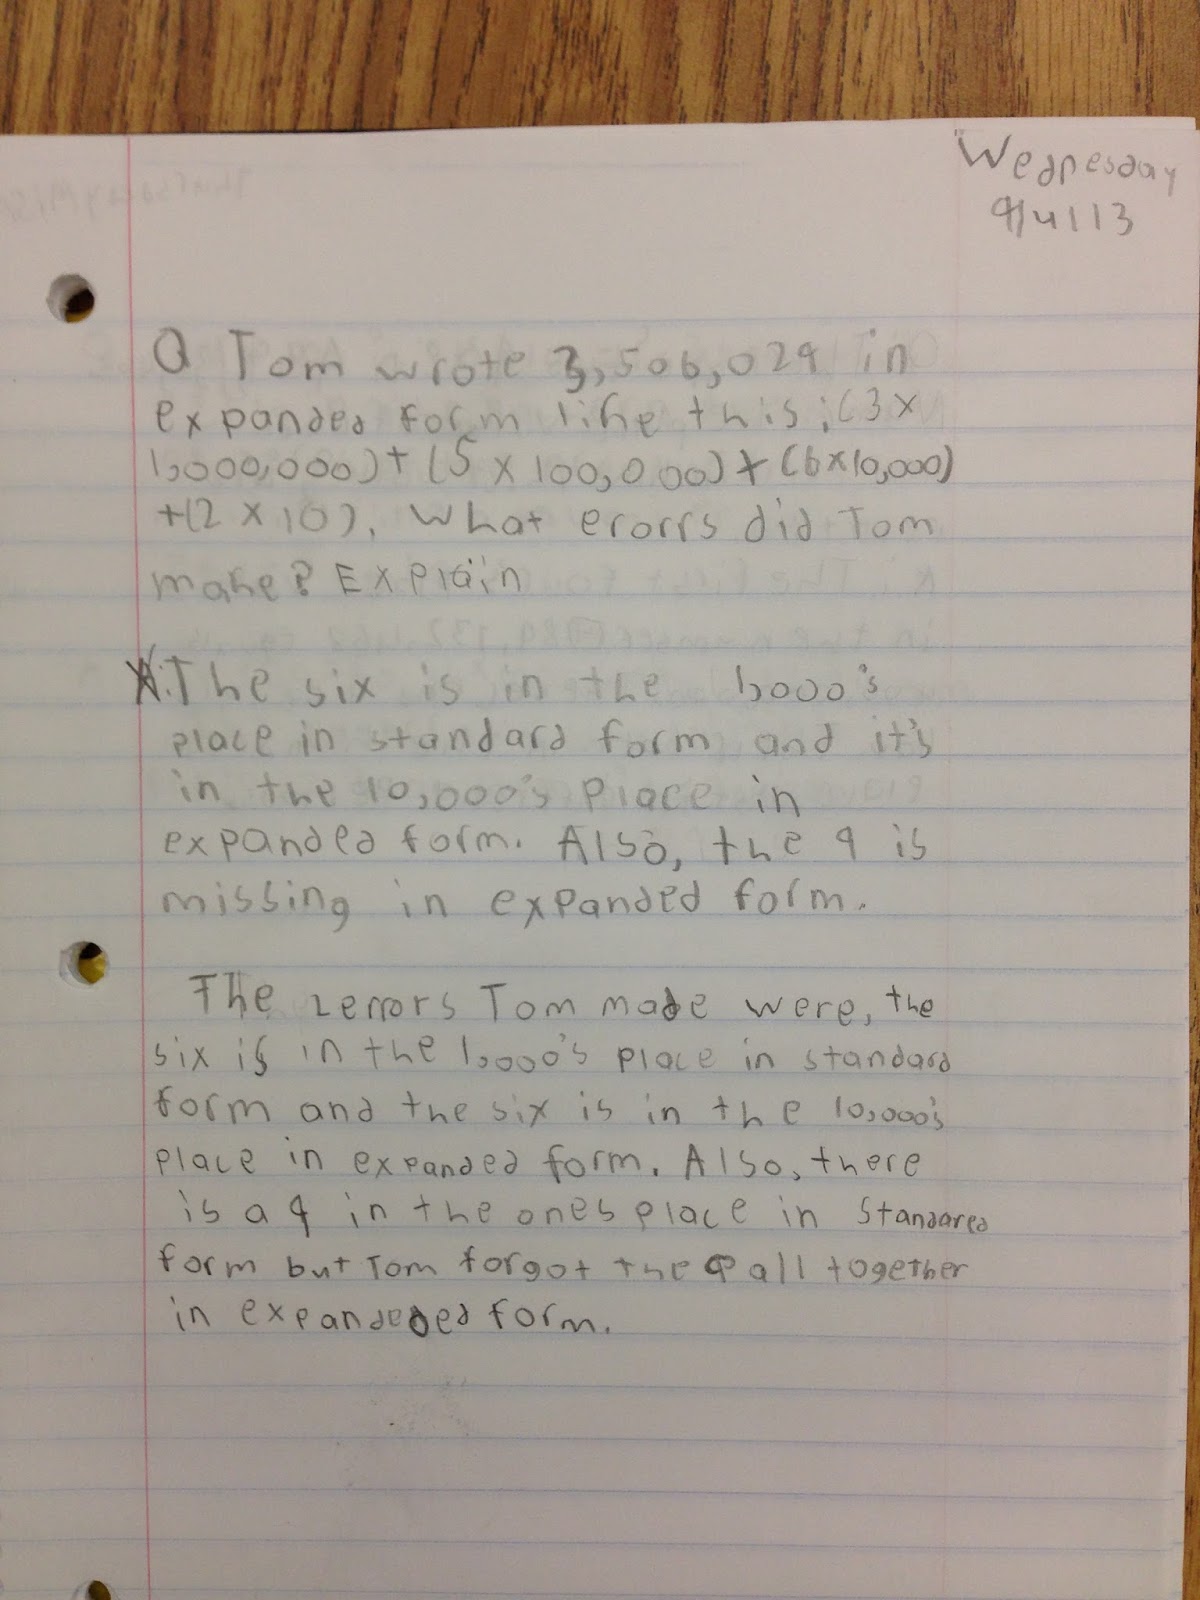 Wednesday
9/4/13
Q Tom wrote 3,506,029 in
expanded form like this;(3x
1,000,000)+(5 x 100,000)+(6x10,000)
+(2 x 10). What erorrs did Tom
make? Explain
A:The six is in the 1,000's
place in standard form and it's
in the 10,000's place in
expanded form. Also, the 9 is
missing in expanded form.
The 2errors Tom made were, the
six is in the 1,000's place in standard
form and the six is in the 10,000's
place in expanded form. Also, there
is a 9 in the ones place in standared
form but Tom forgot the 9 all together
in expandeded form.